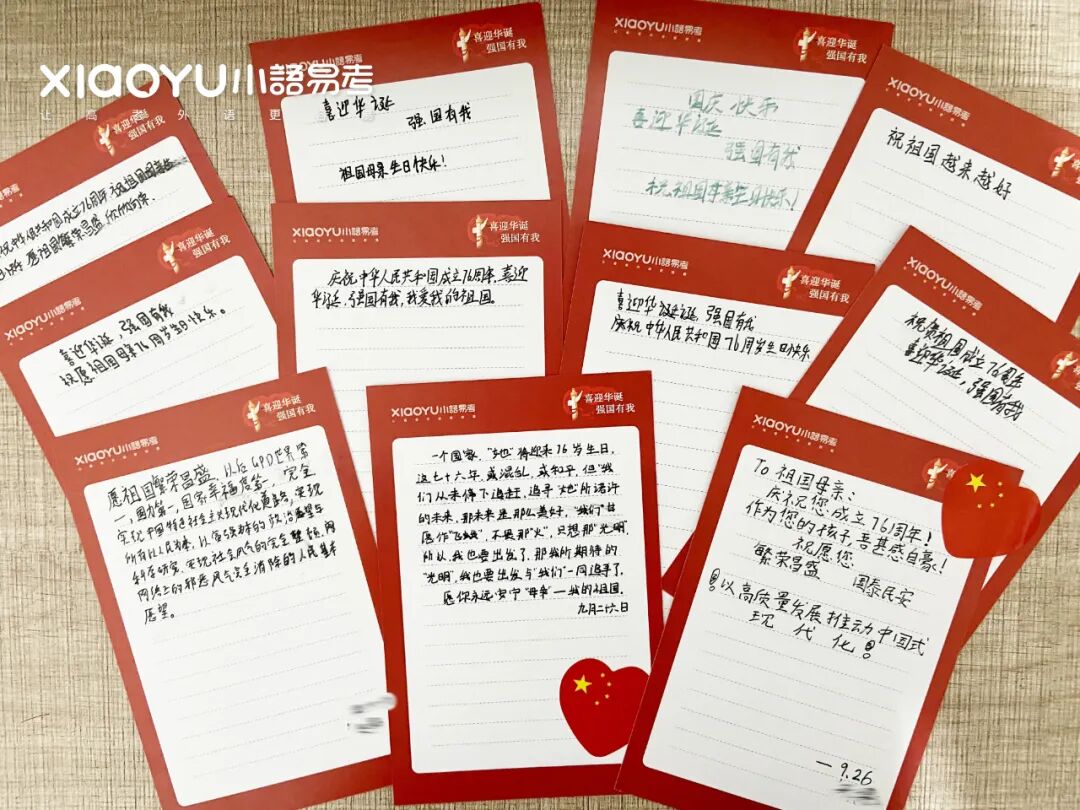 XIAOYU小語易考
XIAOYU小語易考
喜迎华诞
强国有我
祝中华人民共和国成立76周年 祝祖国
愿祖国繁荣昌盛 欣欣向荣
XIAOYU小語易考
喜迎华诞
强国有我
喜迎华诞
强国有我
祖国母亲生日快乐!
XIAOYU小語易考
喜迎华诞
强国有我
国庆快乐
喜迎华诞
强国有我
祝祖国母亲生日快乐!
XIAOYU小語易考
祝祖国越来越好
XIAOYU小語易考
喜迎华诞
强国有我
喜迎华诞,强国有我
祝愿祖国母亲76岁生日快乐。
XIAOYU小語易考
喜迎华诞
强国有我
庆祝中华人民共和国成立76周年,喜迎
华诞,强国有我,我爱我的祖国。
XIAOYU小語易考
喜迎华诞
强国有我
喜迎华诞,强国有我
庆祝中华人民共和国76周岁生日快乐
XIAOYU小語易考
祝贺祖国成立76周年
喜迎华诞,强国有我
XIAOYU小語易考
喜迎华诞
强国有我
愿祖国繁荣昌盛,以后GPD世界第
一,国力第一,国家幸福度第一,完全
实现中国特色社会主义现代化道路,实现
所有以人民为本,以富强群体的政治愿望与
科学研究,实现社会风气的完全整顿,网
网络上的邪恶风气完全消除的人民基本
愿望。
XIAOYU小語易考
喜迎华诞
强国有我
一个国家,"她"将迎来76岁生日,
这七十六年,或混乱,或和平,但"我
们"从未停下追赶,追寻"她"所诺许
的未来,那未来是那么美好,"我们"甘
愿作"飞蛾",不畏那"火",只想那"光明",
所以,我也要出发了,那我所期待的
"光明",我也要出发与"我们"一同追寻了,
愿你永远安宁"母亲"—我的祖国。
九月二十六日
XIAOYU小語易考
To 祖国母亲:
庆祝您成立76周年!
作为您的孩子,吾甚感自豪!
祝愿您
繁荣昌盛 国泰民安
以高质量发展推动中国式
现代化!
—9.26